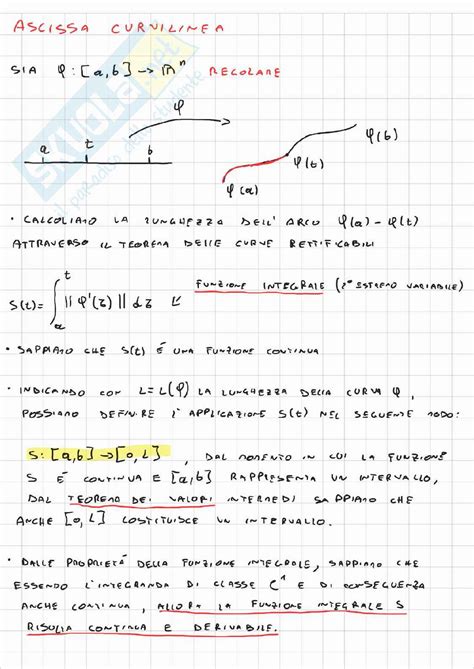 ASCISSA CURVILINEA
SIA φ: [a,b] → ℝⁿ REGOLARE
φ
a t b
φ(b)
φ(t)
φ(a)
• CALCOLIAMO LA LUNGHEZZA DELL'ARCO φ(a) - φ(t)
ATTRAVERSO IL TEOREMA DELLE CURVE RETTIFICABILI
S(t) = ∫ₐᵗ ‖φ'(τ)‖ dτ FUNZIONE INTEGRALE (2° ESTREMO VARIABILE)
• SAPPIAMO CHE S(t) É UNA FUNZIONE CONTINUA
• INDICANDO CON L = L(φ) LA LUNGHEZZA DELLA CURVA φ,
POSSIAMO DEFINIRE L'APPLICAZIONE S(t) NEL SEGUENTE MODO:
S: [a,b] → [0,L] , DAL MOMENTO IN CUI LA FUNZIONE
S É CONTINUA E [a,b] RAPPRESENTA UN INTERVALLO,
DAL TEOREMA DEI VALORI INTERMEDI SAPPIAMO CHE
ANCHE [0,L] COSTITUISCE UN INTERVALLO.
• DALLE PROPRIETÁ DELLA FUNZIONE INTEGRALE, SAPPIAMO CHE
ESSENDO L'INTEGRANDA DI CLASSE C¹ E DI CONSEGUENZA
ANCHE CONTINUA, ALLORA LA FUNZIONE INTEGRALE S
RISULTA CONTINUA E DERIVABILE.
SKUOLA.net
il paradiso dello studente